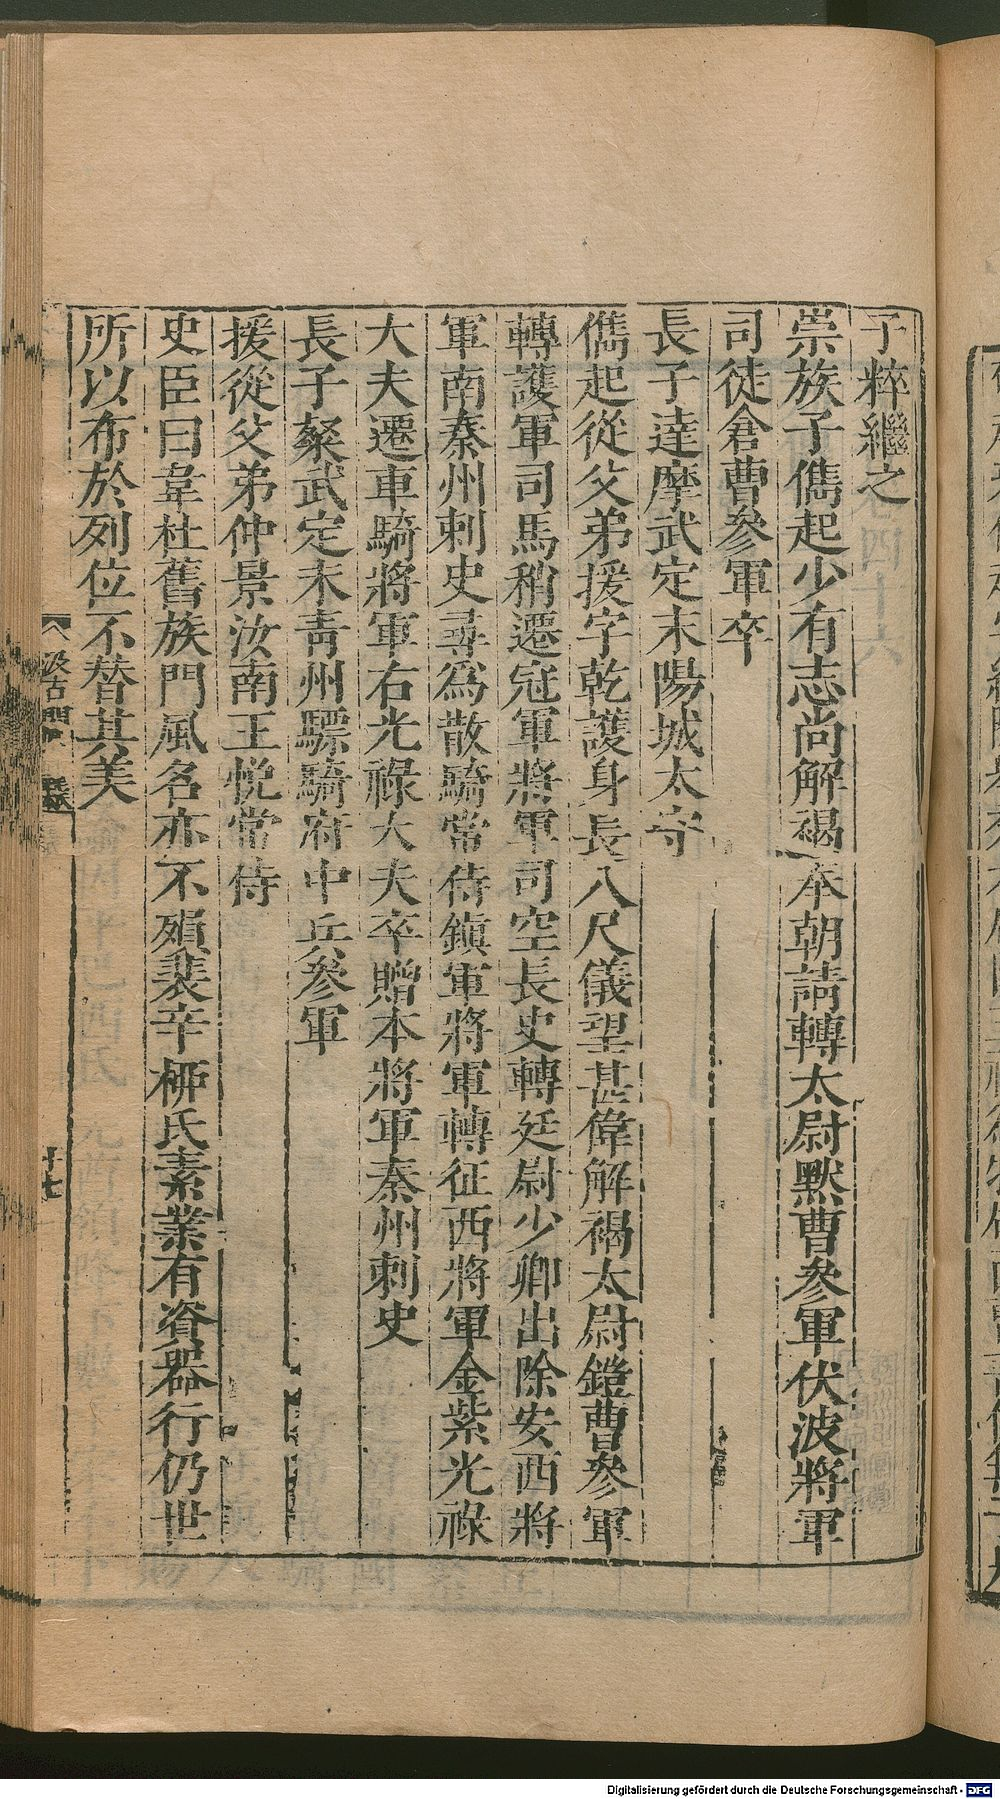 子粹繼之
崇族子儁起少有志尚解褐奉朝請轉太尉默曹參軍伏波將軍
司徒倉曹參軍卒
長子達摩武定末陽城太守
儁起從父弟援字乾護身長八尺儀望甚偉解褐太尉鎧曹參軍
轉護軍司馬稍遷冠軍將軍司空長史轉廷尉少卿出除安西將
軍南秦州刺史尋爲散騎常侍鎮軍將軍轉征西將軍金紫光祿
大夫遷車騎將軍右光祿大夫卒贈本將軍秦州刺史
長子粲武定末青州驃騎府中兵參軍
援從父弟仲景汝南王悅常侍
史臣曰韋杜舊族門風名亦不殞裴辛柳氏素業有資器行仍世
所以布於列位不替其美
汲古閣
十七
Digitalisierung gefördert durch die Deutsche Forschungsgemeinschaft - DFG